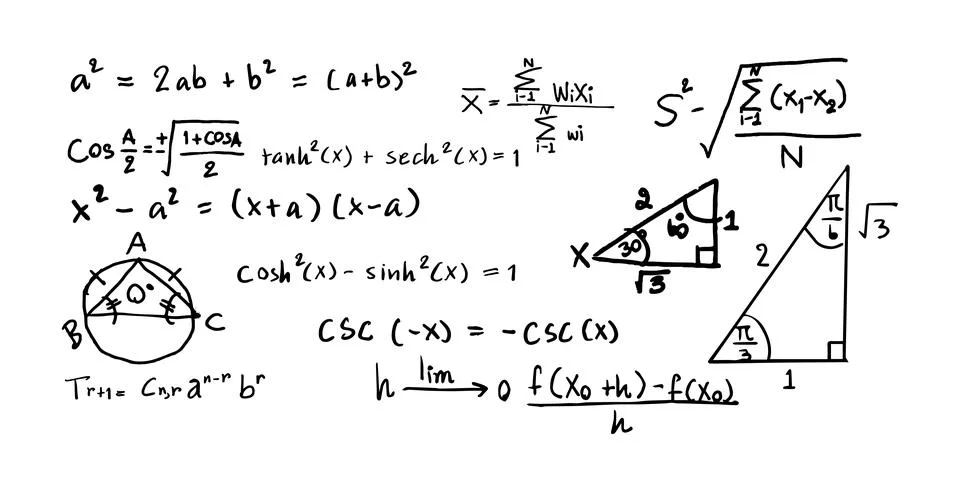 a² = 2ab + b² = (a+b)²
X̄ = ∑_{i-1}^{N} WiXi / ∑_{i-1}^{N} wi
S² - √(∑_{i-1}^{N} (x₁-x₂) / N)
Cos A/2 = ±√(1+COSA / 2)
tanh²(x) + sech²(x) = 1
x² - a² = (x+a)(x-a)
2
60°
1
X
30°
√3
π/6
√3
2
π/3
1
A
0°
B
C
cosh²(x) - sinh²(x) = 1
CSC (-x) = -CSC(x)
T r+1 = Cn,r a^{n-r} b^r
h lim → 0 f(x₀+h)-f(x₀) / h